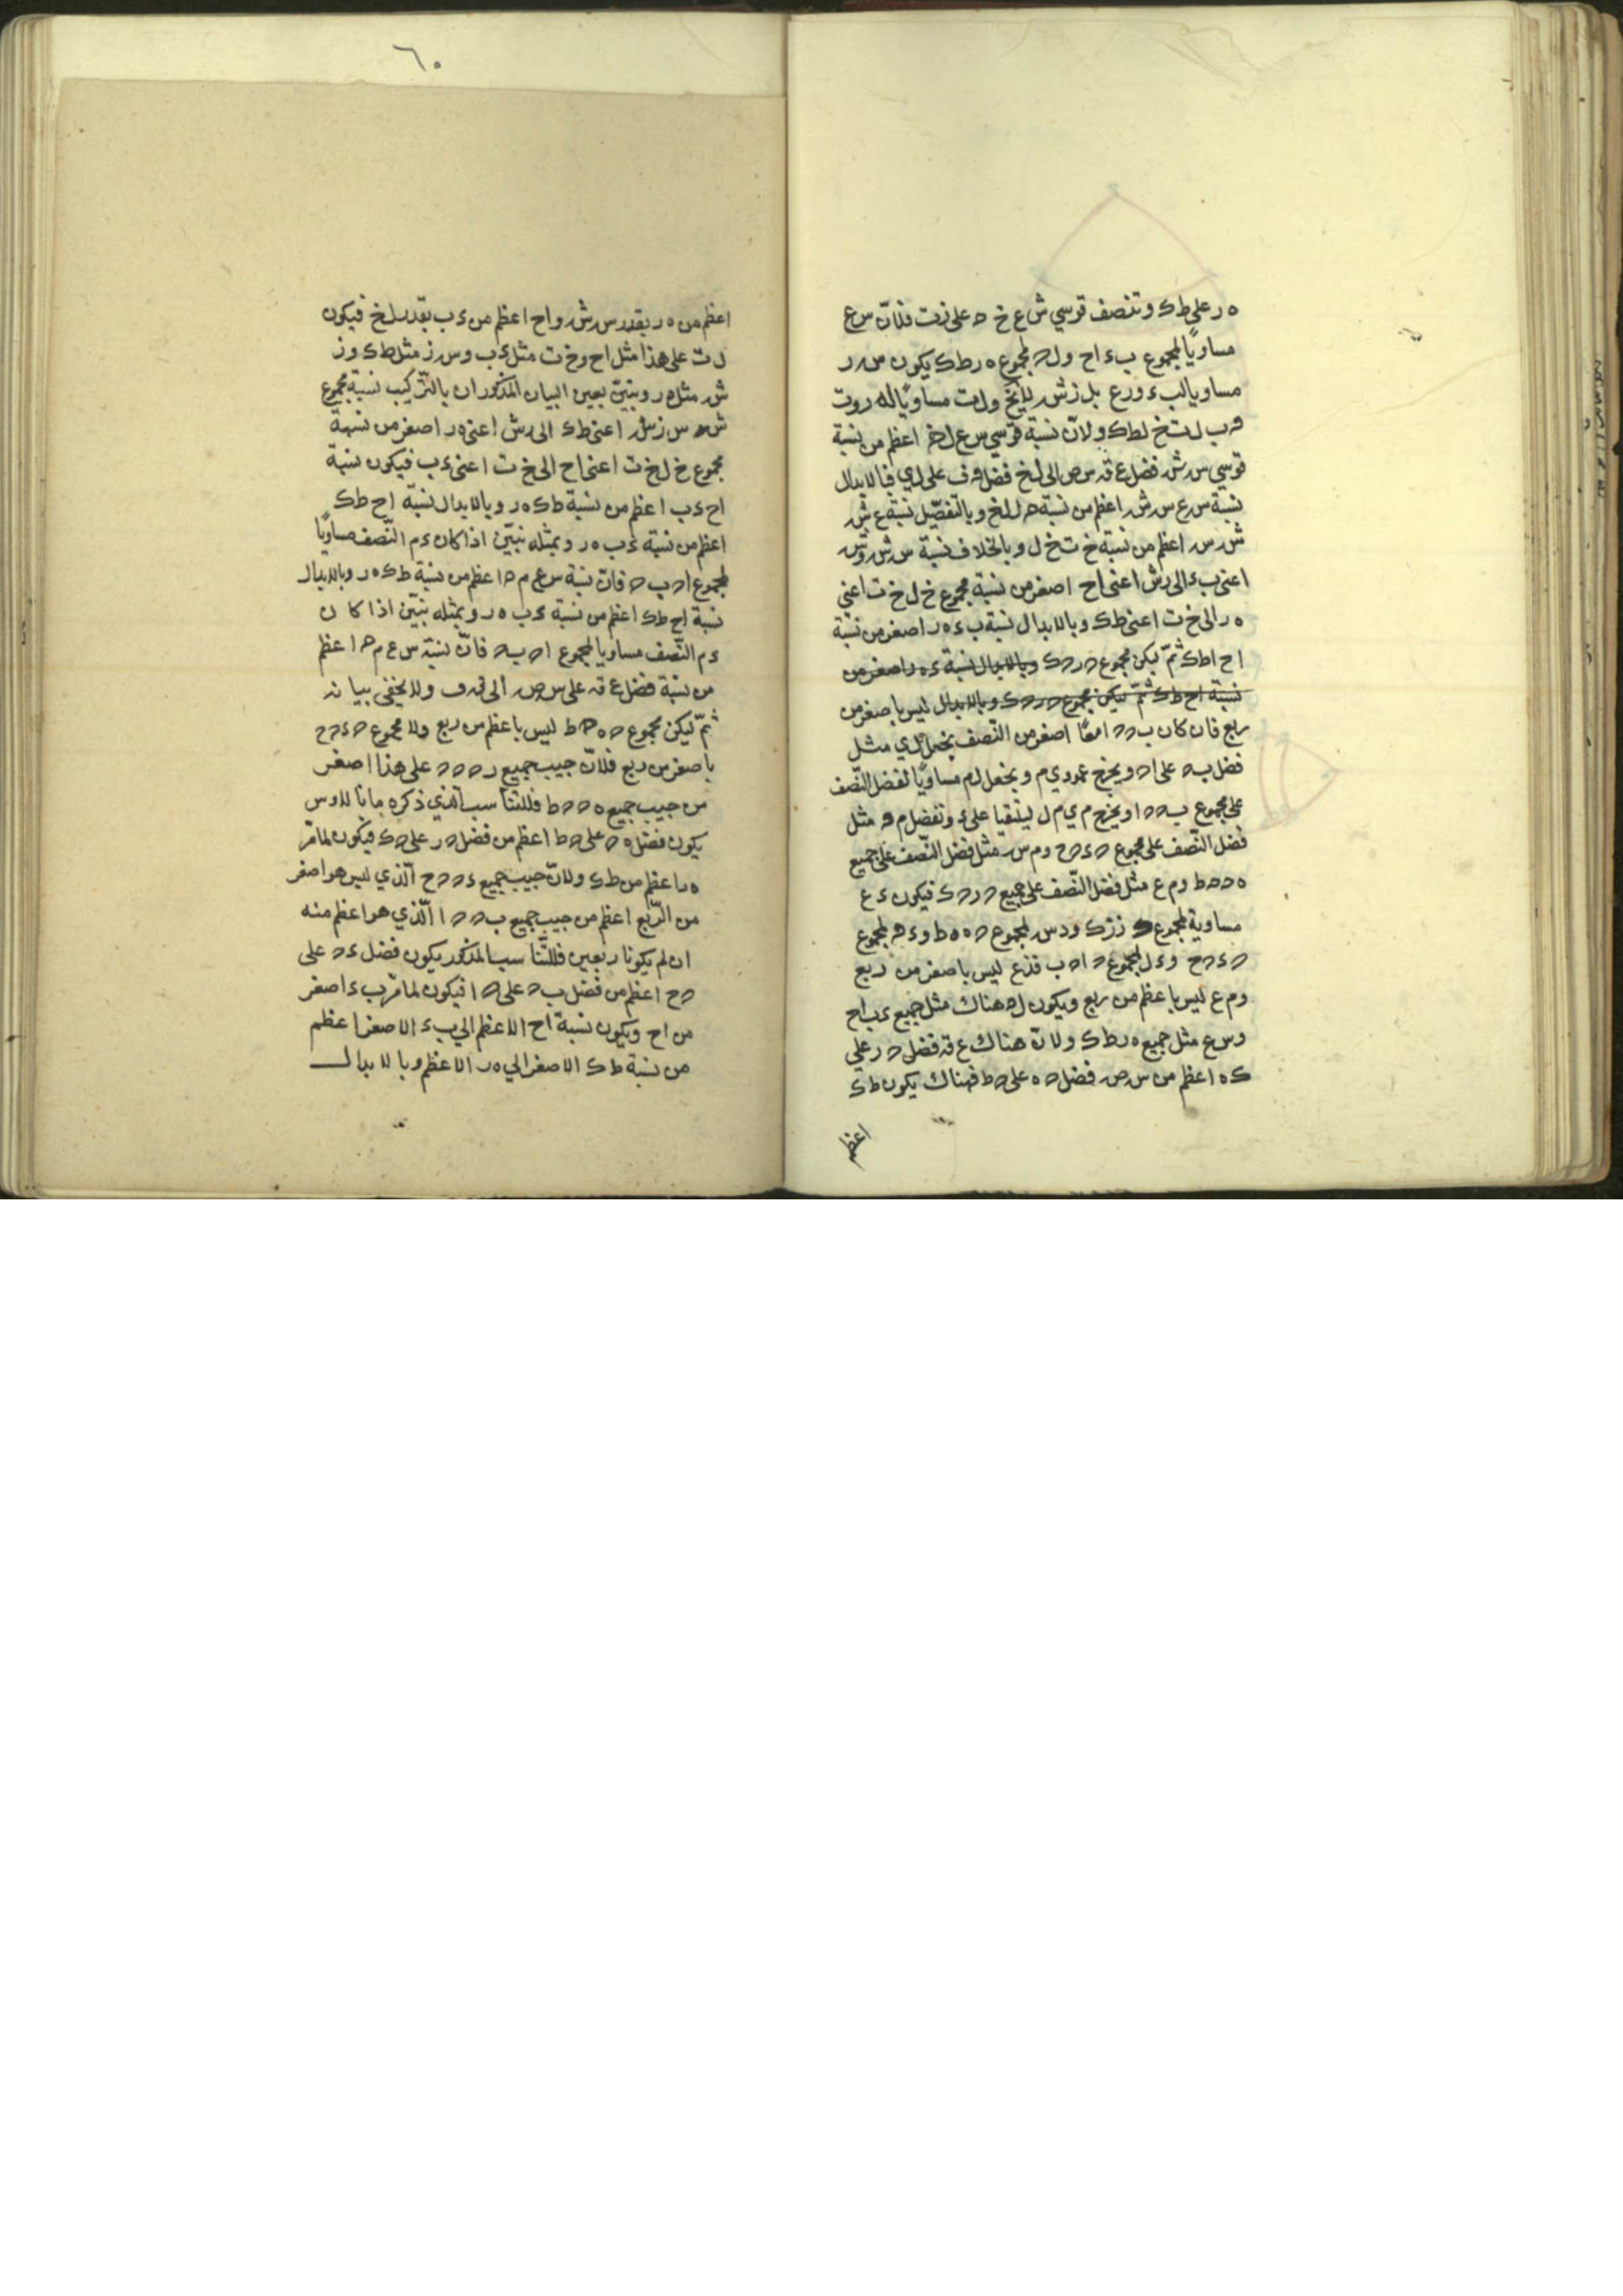 ه ر على ط ك وتنصف قوسي ش ع خ ه على ز ت فلانّ س ع
مساويًا لمجموع ب ء ا ح و ل ه لمجموع ه ر ط ك يكون س ر
مساويا لب ء و ر ع بل ز ش لا ح و ل ت مساويًا له ر و ت
ه ب ل ت خ لط ك ولانّ نسبة قوسي س ع ل خ اعظم من نسبة
قوسي س ش فضل ع ق س ص الى ل خ فضل ه ف على ل ي فبالابدال
نسبة س ع س ش اعظم من نسبة ه ل ل خ وبالتفصيل نسبة ع ش
ش س اعظم من نسبة خ ت خ ل وبالخلاف نسبة س ش ش
اعنى ب ء الى ر ش اعنى ا ح اصغر من نسبة مجموع خ ل خ ت اعنى
ه ر الى خ ت اعنى ط ك وبالابدال نسبة ب ء ه ر اصغر من نسبة
ا ح ا ط ك ثمّ ليكن مجموع ح ر ح ك وبالابدال نسبة ء ه ر اصغر من
نسبة ا ح ط ك ثمّ ليكن مجموع ح ر ح ك وبالابدال ليس باصغر من
ربع فان كان ب ح ح ا معًا اصغر من النّصف نجعل ل ي مثل
فضل ب ه على ا ه ويخرج عمود ي م ونجعل ل م مساويًا لفضل النّصف
على مجموع ب ه ه ا ويخرج م ي م ل ليلتقيا على ء ونفضل م ه مثل
فضل النّصف على مجموع ح ء ح ح و م س مثل فضل النّصف على جميع
ه ح ح ط و م ع مثل فضل النّصف على جميع ح ر ح ك فيكون ء ع
مساوية لمجموع ح ر ح ك و ء س لمجموع ح ه ح ط و ء ه لمجموع
ح ء ح ح و ء ل لمجموع ح ا ح ب فء ع ليس باصغر من ربع
و م ع ليس باعظم من ربع ويكون ل ه هناك مثل جميع ء ب ا ح
و س ع مثل جميع ه ر ط ك ولانّ هناك ع ق فضل ح ر على
ك ه اعظم من س ص فضل ح ه على ح ط فهناك يكون ط ك
اعظم
٦٠
اعظم من ه ر بقدر س ش و ا ح اعظم من ء ب بقدر ل خ فيكون
ل ت على هذا مثل ا ح و خ ت مثل ء ب و س ز مثل ط ك و ز
ش مثل ه ر ونبيّن بعين البيان المذكور ان بالتّركيب نسبة مجموع
ش س س ز ش اعنى ط ك الى ز ش اعنى ه ر اصغر من نسبة
مجموع خ ل خ ت اعنى ا ح الى خ ت اعنى ء ب فيكون نسبة
ا ح ء ب اعظم من نسبة ط ك ه ر وبالابدال نسبة ا ح ط ك
اعظم من نسبة ء ب ه ر وبمثله نبيّن اذا كان ء م النّصف مساويًا
لمجموع ا ح ب ح فانّ نسبة س ع م ح اعظم من نسبة ط ك ه ر وبالابدال
نسبة ا ح ط ك اعظم من نسبة ء ب ه ر وبمثله نبيّن اذا كان
ء م النّصف مساويا لمجموع ا ح ب ح فانّ نسبة س ع م ح اعظم
من نسبة فضل ع ق على س ص الى ق ف ولا يخفى بيانه
ثمّ ليكن مجموع ح ه ح ط ليس باعظم من ربع ولا مجموع ح ء ح ح
باصغر من ربع فلانّ جيب جميع ر ح ح ه على هذا اصغر
من جيب جميع ه ح ح ط فللتناسب الذي ذكره مانالاوس
يكون فضل ه ح على ح ط اعظم من فضل ح ر على ح ك فيكون لما مرّ
ه ر اعظم من ط ك ولانّ جيب جميع ء ح ح ح الّذي ليس هو اصغر
من الرّبع اعظم من جيب جميع ب ح ح ا الّذي هو اعظم منه
ان لم يكونا ربعين فللتّناسب المذكور يكون فضل ء ح على
ح ح اعظم من فضل ب ح على ح ا فيكون لما مرّ ب ء اصغر
من ا ح ويكون نسبة ا ح الاعظم الى ب ء الاصغر اعظم
من نسبة ط ك الاصغر الى ه ر الاعظم وبالابدال